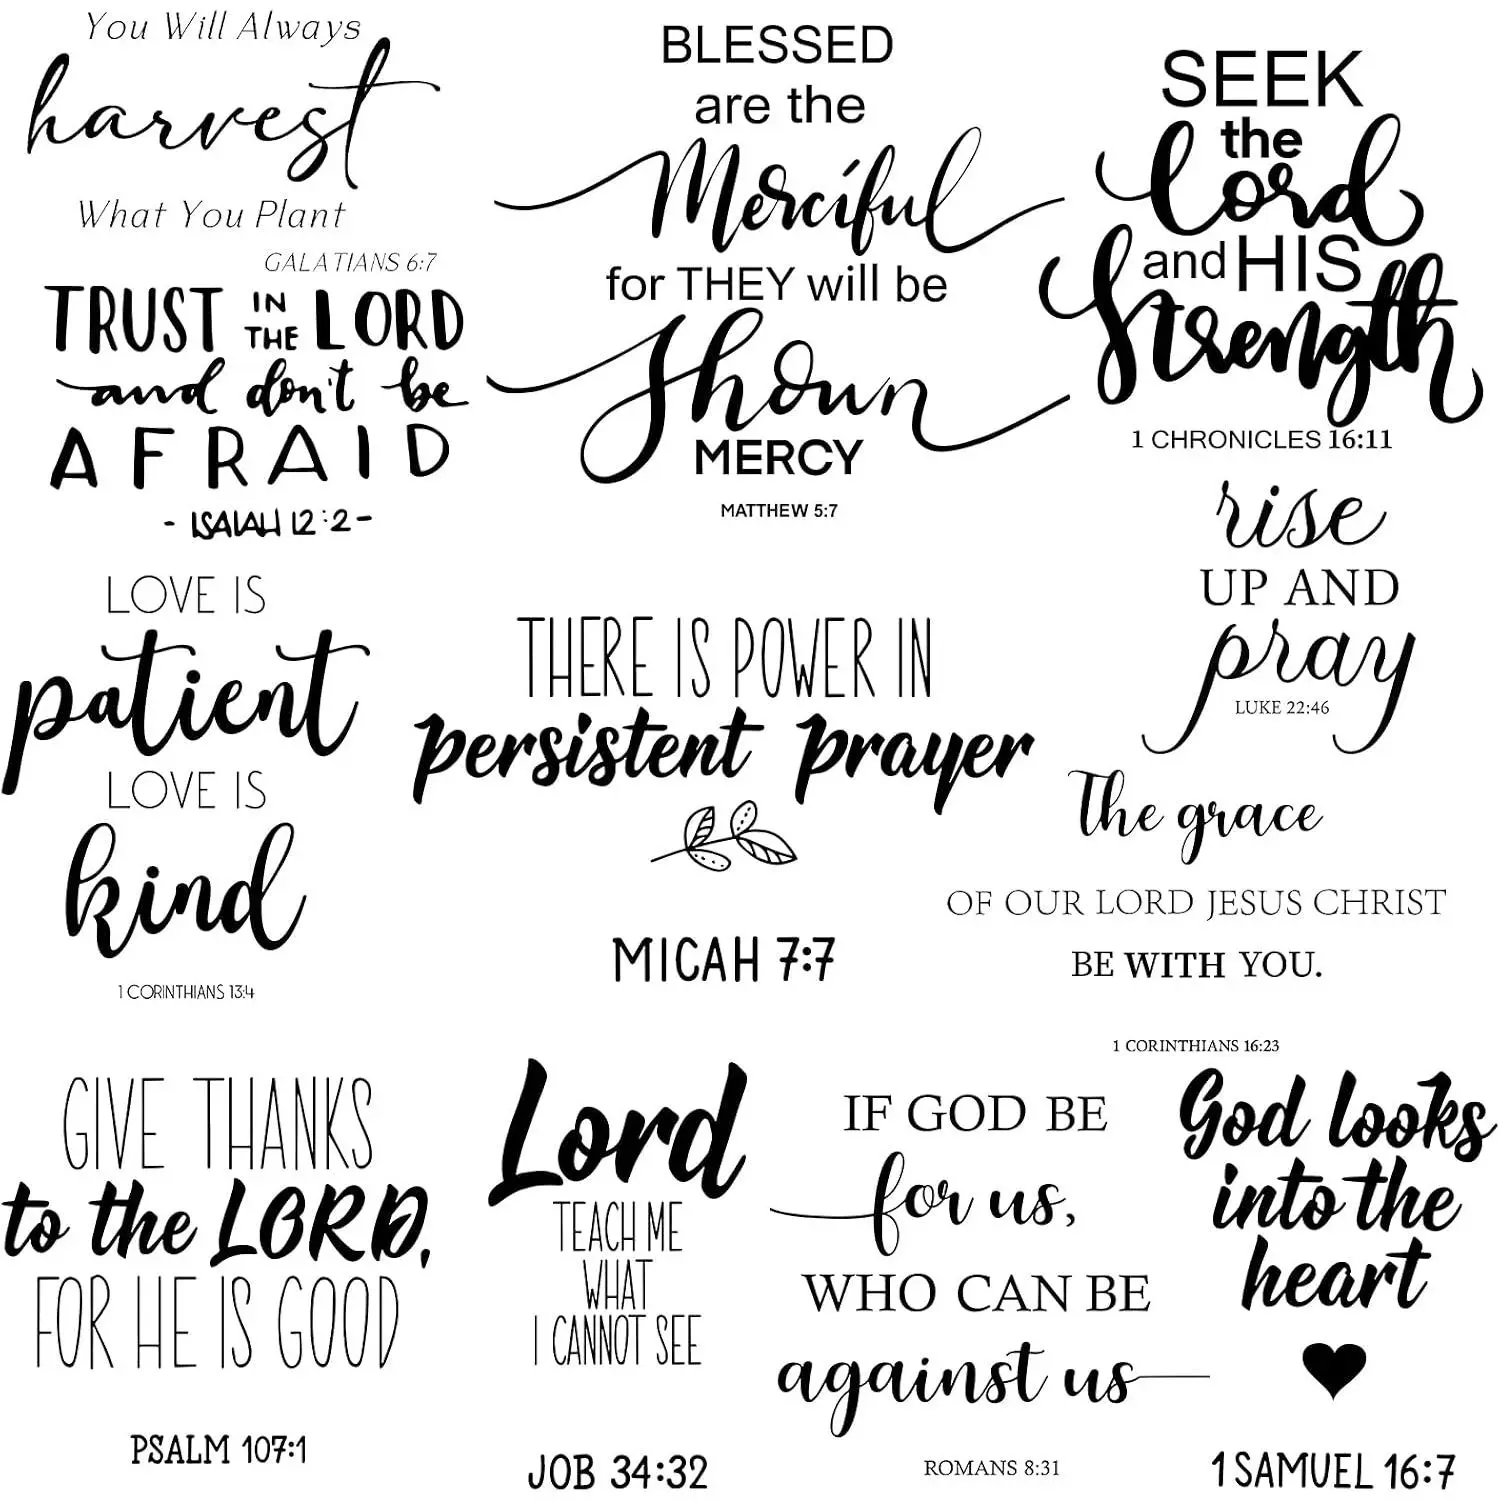 You Will Always
harvest
What You Plant
GALATIANS 6:7
BLESSED
are the
Merciful
for THEY will be
Shown
MERCY
MATTHEW 5:7
SEEK
the
Lord
and HIS
Strength
1 CHRONICLES 16:11
TRUST IN THE LORD
and don't be
AFRAID
- ISAIAH 12:2 -
rise
UP AND
pray
LUKE 22:46
LOVE IS
patient
LOVE IS
kind
1 CORINTHIANS 13:4
THERE IS POWER IN
persistent prayer
MICAH 7:7
The grace
OF OUR LORD JESUS CHRIST
BE WITH YOU.
1 CORINTHIANS 16:23
GIVE THANKS
to the LORD,
FOR HE IS GOOD
PSALM 107:1
Lord
TEACH ME
WHAT
I CANNOT SEE
JOB 34:32
IF GOD BE
for us,
WHO CAN BE
against us
ROMANS 8:31
God looks
into the
heart
1 SAMUEL 16:7